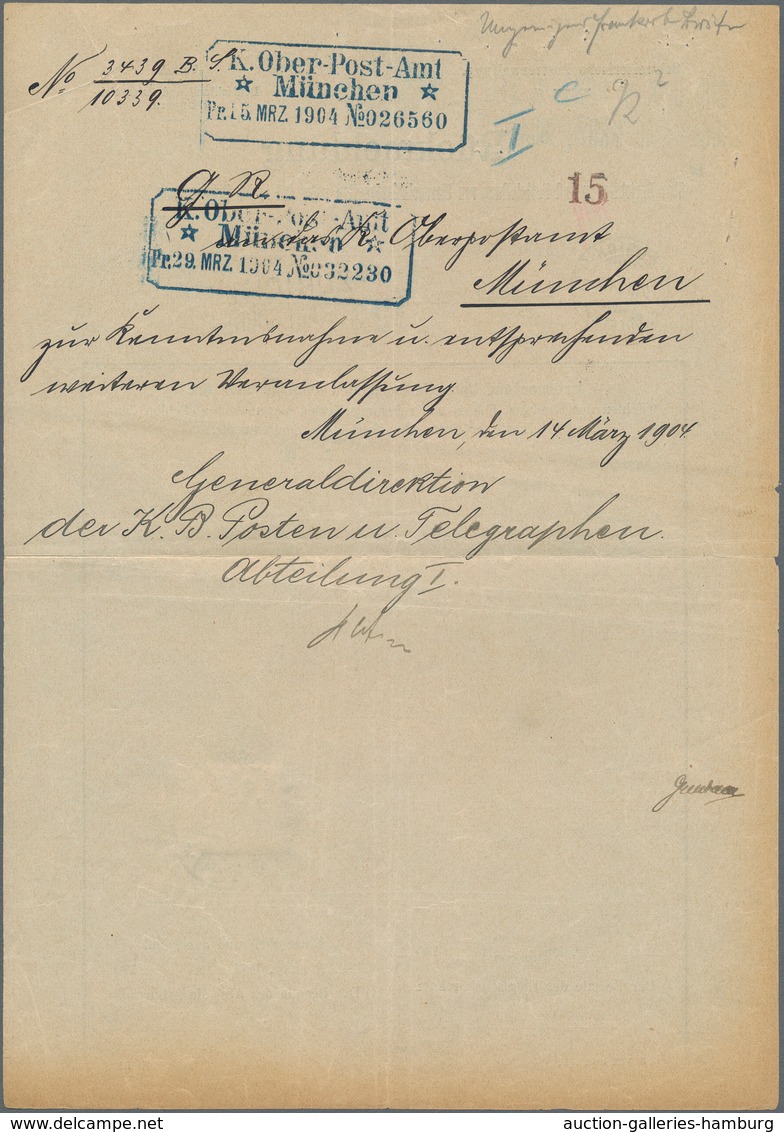 No 3439 B. S.
10339.
K. Ober-Post-Amt
München
Pr. 15. MRZ. 1904 No 026560
I c
R 2
15
g. R.
K. Ober-Post-Amt
München
Pr. 29. MRZ. 1904 No 032230
an das K. Oberpostamt
München
zur Kenntnisnahme u. entsprechenden
weiteren Veranlassung.
München, den 14 März 1904.
Generaldirektion
der K. B. Posten u. Telegraphen.
Abteilung I.
auction-galleries-hamburg